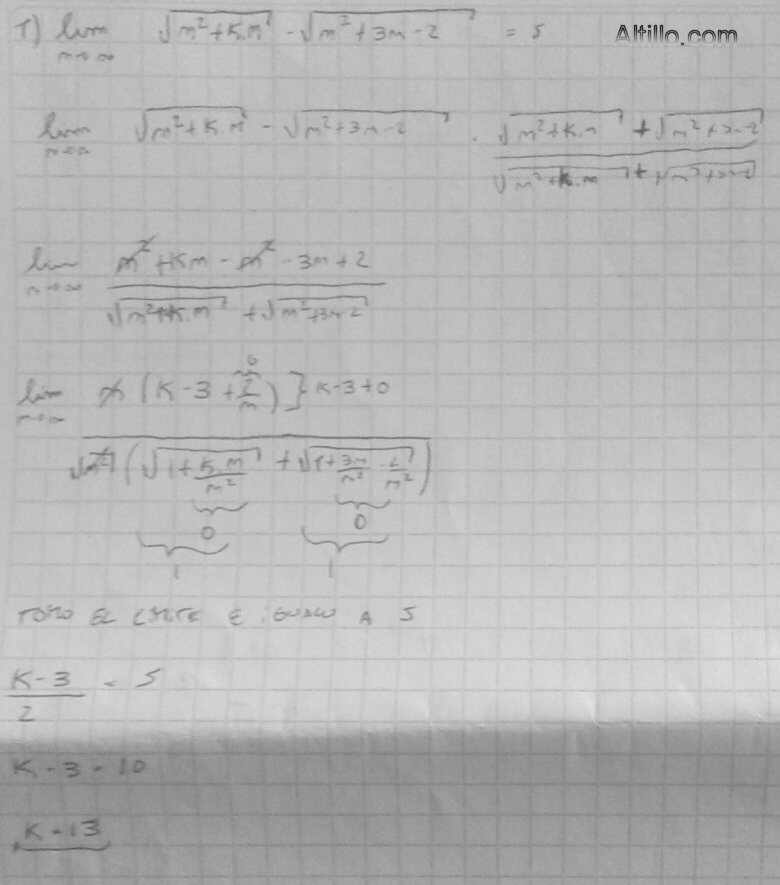 1) lim √(m² + K.m) - √(m² + 3m - 2) = 5 Altillo.com
m→∞
lim √(m² + K.m) - √(m² + 3m - 2) . √(m² + K.m) + √(m² + 3m - 2)
m→∞ √(m² + K.m) + √(m² + 3m - 2)
lim m² + Km - m² - 3m + 2
m→∞ √(m² + K.m) + √(m² + 3m - 2)
0
lim m (K - 3 + 2/m) } K - 3 + 0
m→∞
√m² (√(1 + K.m/m²) + √(1 + 3m/m² - 2/m²))
0 0
1 1
TOMO EL LIMITE E IGUALO A 5
K - 3 = 5
2
K - 3 = 10
K = 13